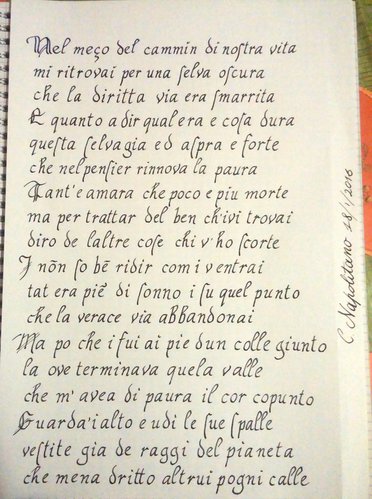 Nel meço del cammin di nostra vita
mi ritrovai per una selva oscura
che la diritta via era smarrita
E quanto a dir qual era e cosa dura
questa selvagia ed aspra e forte
che nel pensier rinnova la paura
Tant'e amara che poco e piu morte
ma per trattar del ben ch'ivi trovai
diro de laltre cose chi v'ho scorte
I nõn so bē ridir com i ventrai
tat era piē di sonno i su quel punto
che la verace via abbandonai
Ma po che i fui ai pie dun colle giunto
la ove terminava quela valle
che m'avea di paura il cor copunto
Guarda'i alto e udi le sue spalle
vestite gia de raggi del pianeta
che mena dritto altrui pogni calle
C Napolitano 28/1/2016